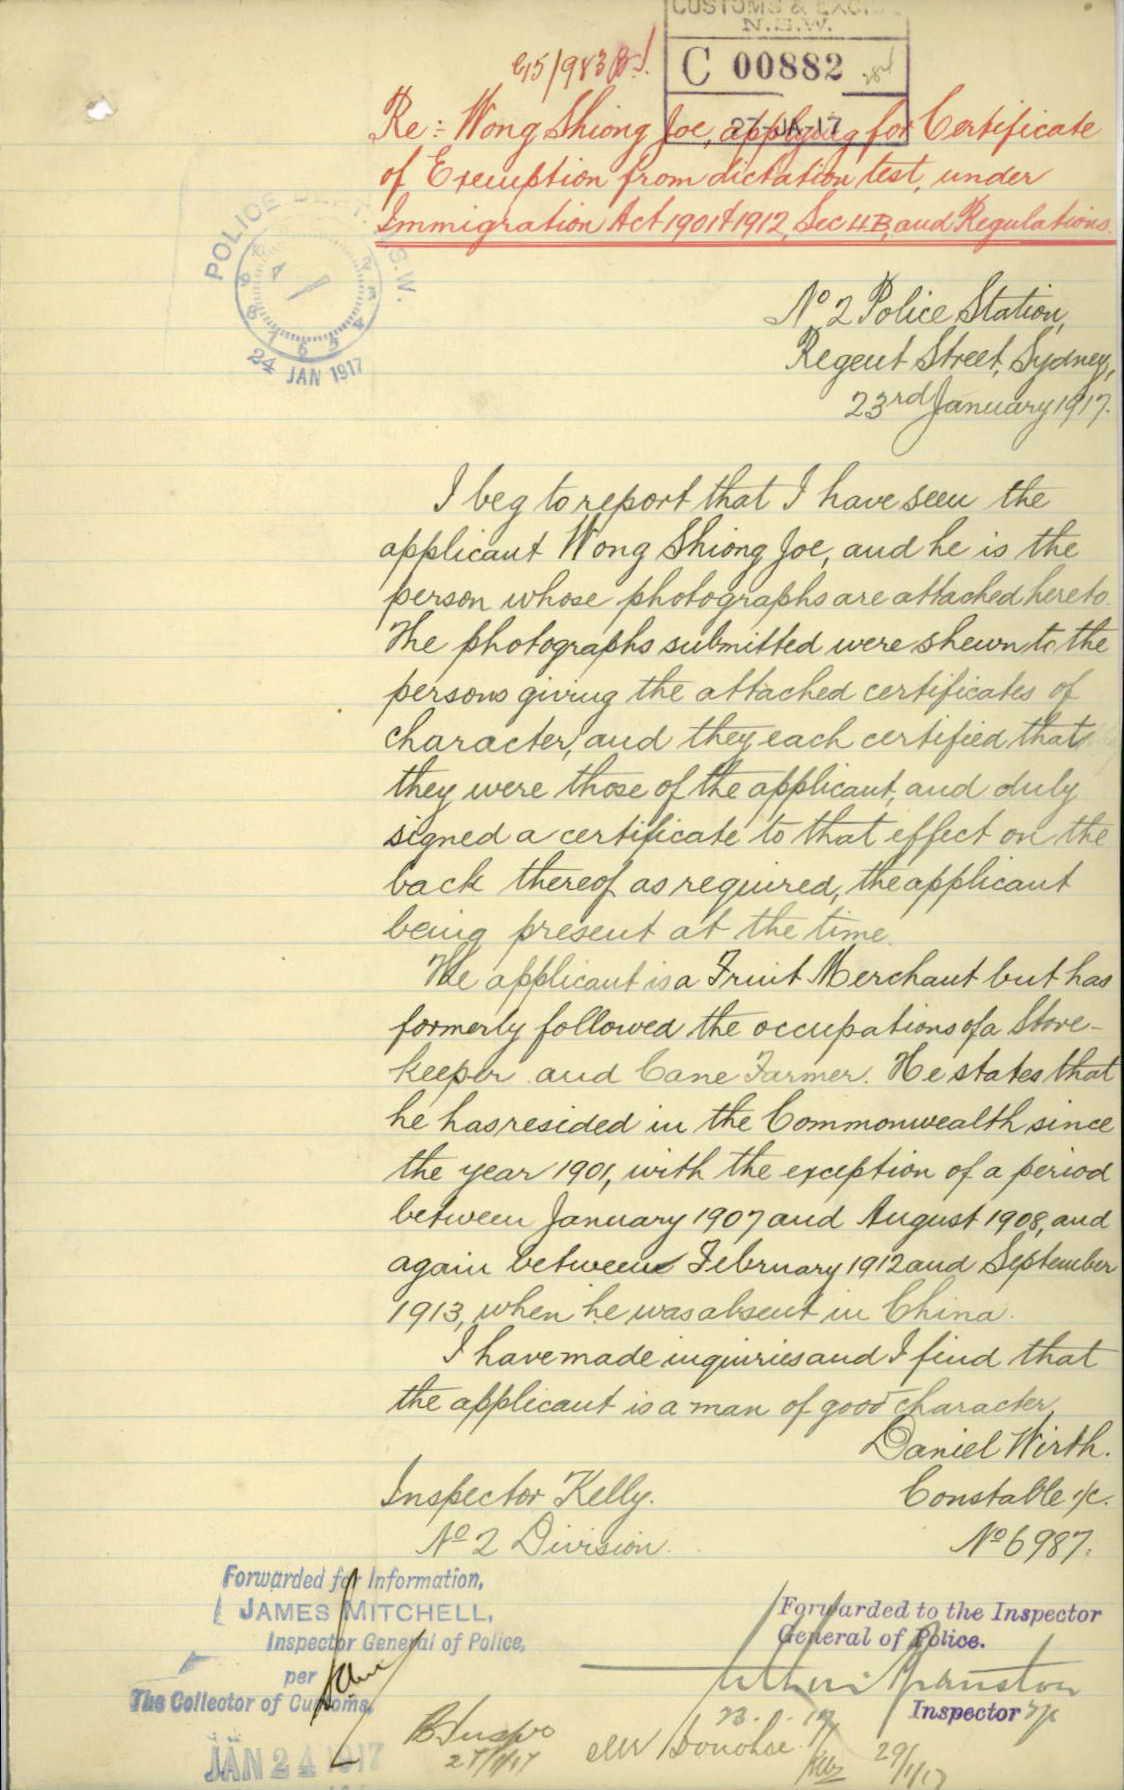 CUSTOMS & EXCISE
N.S.W.
C 00882
27-JA-17
Re:- Wong Shiong Joe, applying for Certificate
of Exemption from dictation test, under
Immigration Act 1901 & 1912, Sec 4B, and Regulations.
POLICE DEPT. N.S.W.
24 JAN 1917
No 2 Police Station,
Regent Street, Sydney,
23rd January 1917.
I beg to report that I have seen the
applicant Wong Shiong Joe, and he is the
person whose photographs are attached hereto.
The photographs submitted were shewn to the
persons giving the attached certificates of
character, and they each certified that
they were those of the applicant, and duly
signed a certificate to that effect on the
back thereof as required, the applicant
being present at the time.
The applicant is a Fruit Merchant but has
formerly followed the occupations of a Store-
keeper and Cane Farmer. He states that
he has resided in the Commonwealth since
the year 1901, with the exception of a period
between January 1907 and August 1908, and
again between February 1912 and September
1913, when he was absent in China.
I have made inquiries and I find that
the applicant is a man of good character.
Daniel Wirth.
Inspector Kelly. Constable 1/c.
No 2 Division. No 6987.
Forwarded for Information,
JAMES MITCHELL,
Inspector General of Police,
per
The Collector of Customs.
JAN 24 1917
Forwarded to the Inspector
General of Police.
Inspector
23.1.17
JW Donohoe
27/1/17
29/1/17